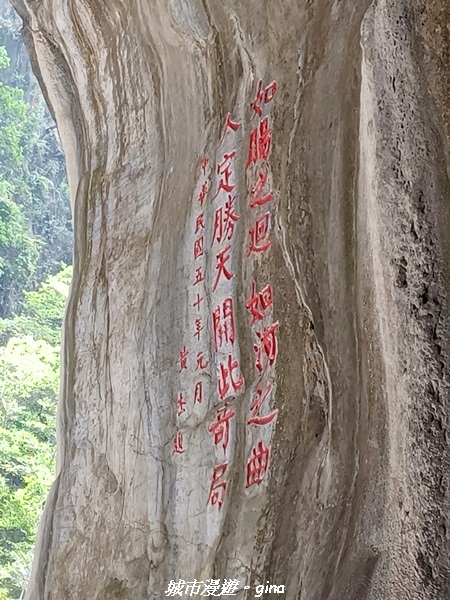 如腸之迴如河之曲
人定勝天開此奇局
中華民國五十年元月
黃杰題
城市漫遊。gina